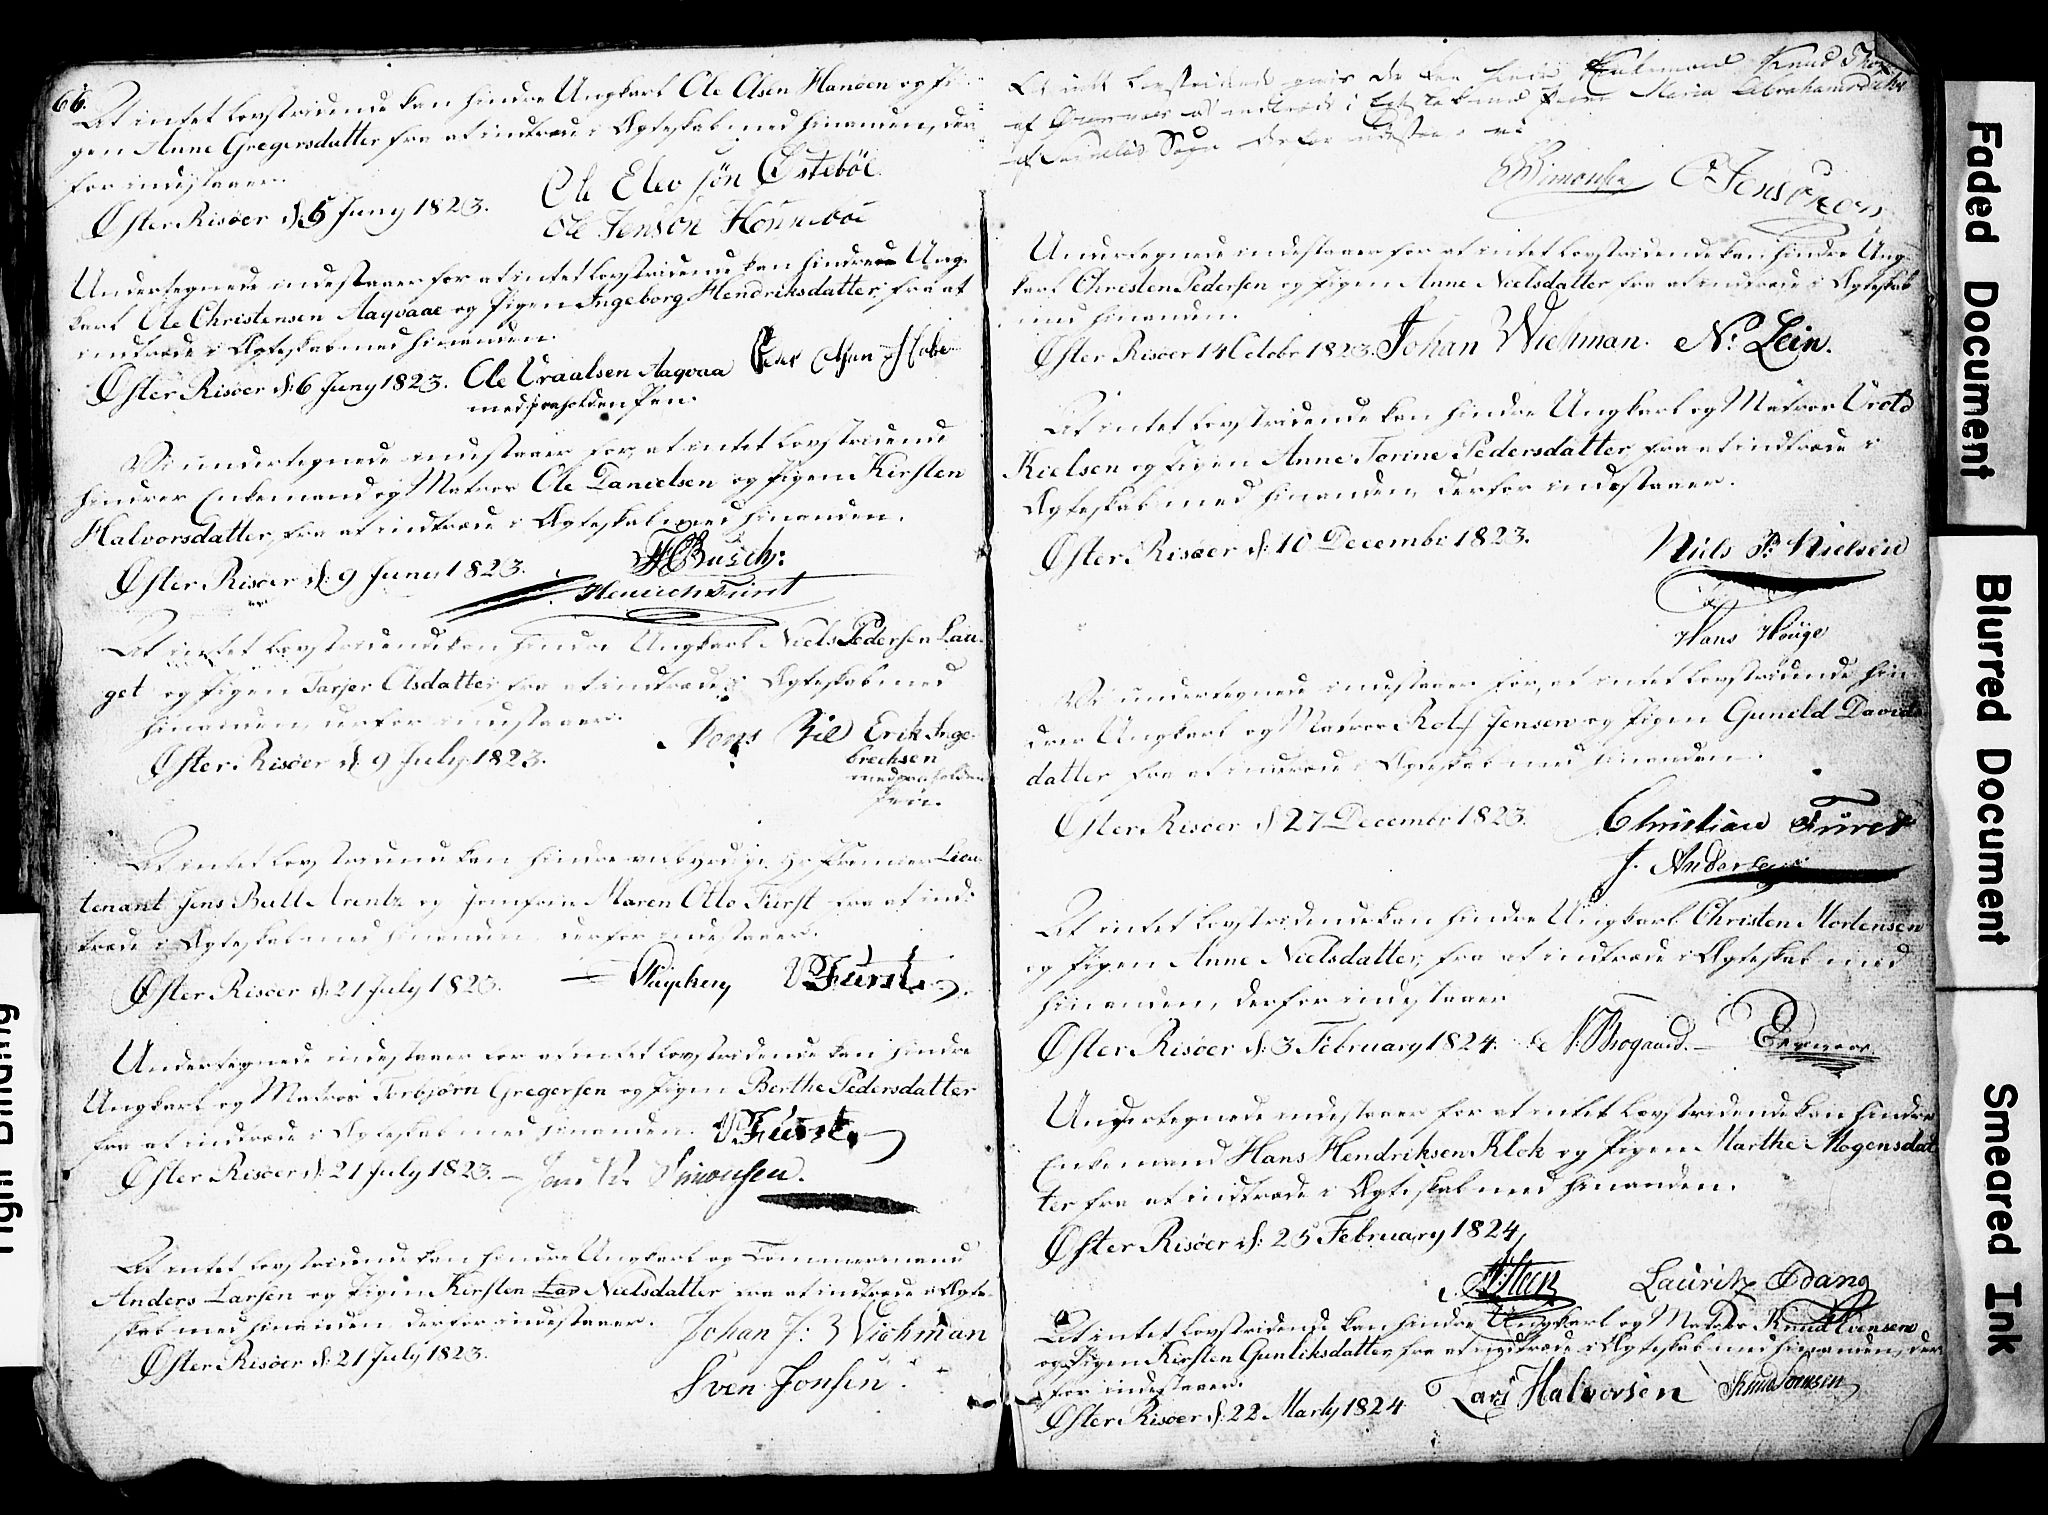 66.
At intet lovstridende kan hindre Ungkarl Ole Olsen Hanøen og Pi-
gen Anne Gregersdatter fra at indtræde i Ægteskab med hinanden, der-
for indestaaer.
Øster Risøer d: 5 Juny 1823.
Ole Elev søn Østebøl
Ole Jensøn
Undertegnede indestaaer for at intet lovstridende kan hindre Ung-
karl Ole Christensen Aaqvaae og Pigen Ingeborg Hendriksdatter, fra at
indtræde i Ægteskab med hinanden.
Øster Risøer d: 6 Juny 1823.
Ole Uraalsen Aaqvaa
med paaholden Pen.
Vi undertegnede indestaaer for, at intet lovstridende
hindrer Enkemand og Matros Ole Danielsen og Pigen Kirsten
Halvorsdatter, fra at indtræde i Ægteskab med hinanden.
Øster Risøer d: 9 Juny 1823.
Busch:
Henrich Fürst
At intet lovstridende kan hindre Ungkarl Niels Pedersen Lau-
get og Pigen Tarjer Olsdatter fra at indtræde i Ægteskab med
hinanden, derfor indestaaer.
Øster: Risøer d: 9 July 1823.
Erik Inge-
brecksen
med paaholden
Pen.
At intet lovstridende kan hindre velbyrdige Hr Premier Lieu-
tenant Jens Bull Arentz og Jomfrue Maren Otto Fürst fra at ind-
træde i Ægteskab med hinanden derfor indestaaer.
Øster Risøer d: 21 July 1823.
Fürst
Undertegnede indestaaer for at intet lovstridende kan hindre
Ungkarl og Matros Torbjørn Gregersen og Pigen Berthe Pedersdatter
fra at indtræde i Ægteskab med hinanden.
Fürst
Øster Risøer d: 21 July 1823.
Simonsen.
At intet lovstridende kan hindre Ungkarl og Tømmermand
Anders Larsen og Pigen Kirsten Lar Nielsdatter fra at indtræde i Ægte-
skab med hinanden derfor indestaaer.
Øster Risøer d: 21 July 1823.
Johan J: Wichman
Sven Jonsen.
At intet lovstridende Enkemand Knud
af at indtræde i Ægteskab med Pigen Maria Abrahamsdatter
af Sogn derfor indestaaer
Simonsen
Undertegnede indestaaer for at intet lovstridende kan hindre Ung-
karl Christen Pedersen og Pigen Anne Nielsdatter fra at indtræde i Ægteskab
med hinanden.
Øster Risøer 14 Octobr 1823.
Johan Wichman. N: Lein.
At intet lovstridende kan hindre Ungkarl og Matros Vrold
Kielsen og Pigen Anne Torine Pedersdatter fra at indtræde i
Ægteskab med hinanden, derfor indestaaer.
Øster: Risøer d: 10 Decembr 1823.
Niels P: Nielsen
Hans Houge
Vi undertegnede indestaaer for, at intet lovstridende hin-
drer Ungkarl og Matros Rolf Jensen og Pigen Gunild Davids
datter fra at indtræde i Ægteskab med hinanden.
Øster Risøer d 27 Decembr 1823.
Christian Fürst
J. Andersen
At intet lovstridende kan hindre Ungkarl Christen Mortensen
og Pigen Anne Nielsdatter, fra at indtræde i Ægteskab med
hinanden, derfor indestaaer
Øster Risøer d: 3 February 1824.
Undertegnede indestaaer for at intet lovstridende kan hindre
Enkemand Hans Hendriksen Klok og Pigen Marthe Mogensdat
ter fra at indtræde i Ægteskab med hinanden.
Øster Risøer d: 25 February 1824,
Steen
Lauritz Ødang
At intet lovstridende kan hindre Ungkarl og Matros Knud Evensen
og Pigen Kirsten Gunliksdatter, fra at indtræde i Ægteskab med hinanden, der
for indestaaer.
Øster Risøer d: 22 Marty 1824
Lars Halvorsen
Faded Document
Blurred Document
Smeared Ink
Tight Binding